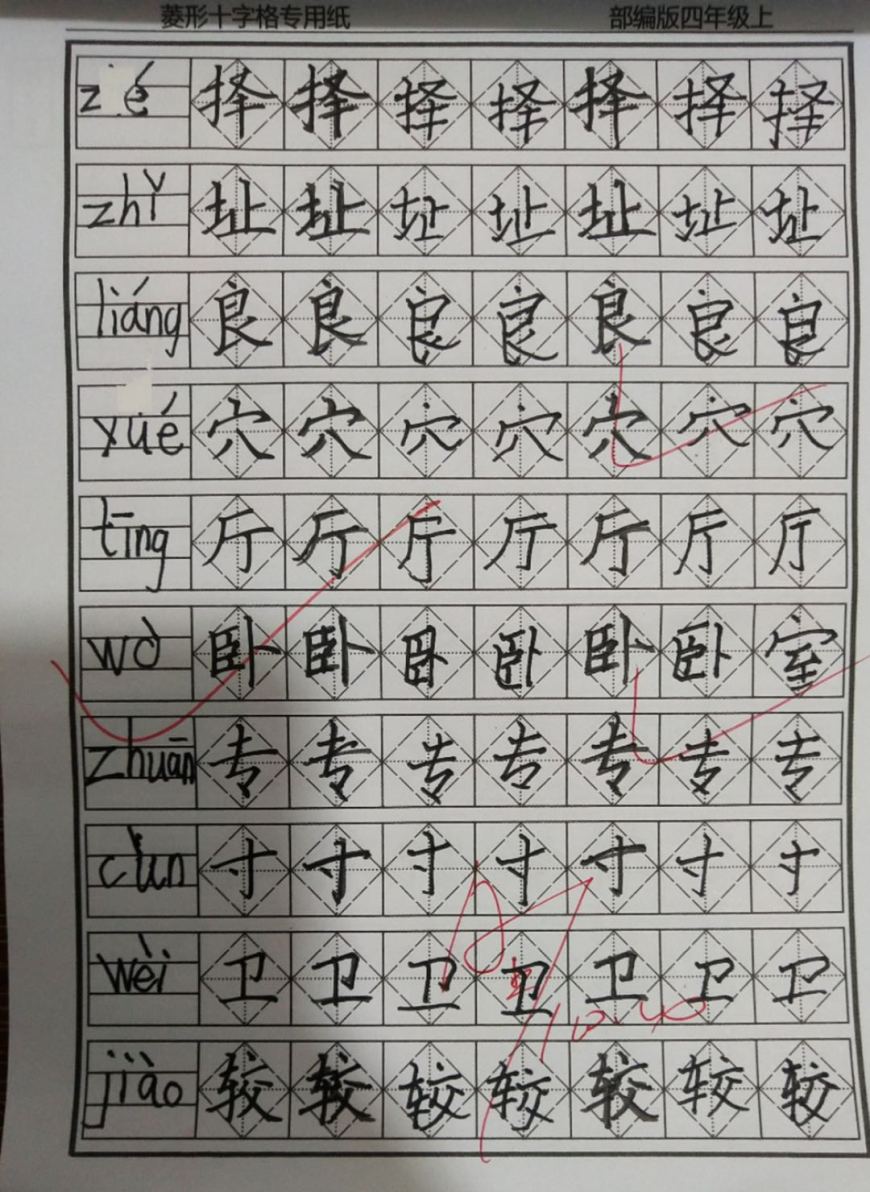 菱形十字格专用纸 部编版四年级上
zé 择 择 择 择 择 择 择
zhǐ 址 址 址 址 址 址 址
liáng 良 良 良 良 良 良 良
xué 穴 穴 穴 穴 穴 穴 穴
tīng 厅 厅 厅 厅 厅 厅 厅
wò 卧 卧 卧 卧 卧 卧 室
zhuān 专 专 专 专 专 专 专
cùn 寸 寸 寸 寸 寸 寸 寸
wèi 卫 卫 卫 卫 卫 卫 卫
jiào 较 较 较 较 较 较 较